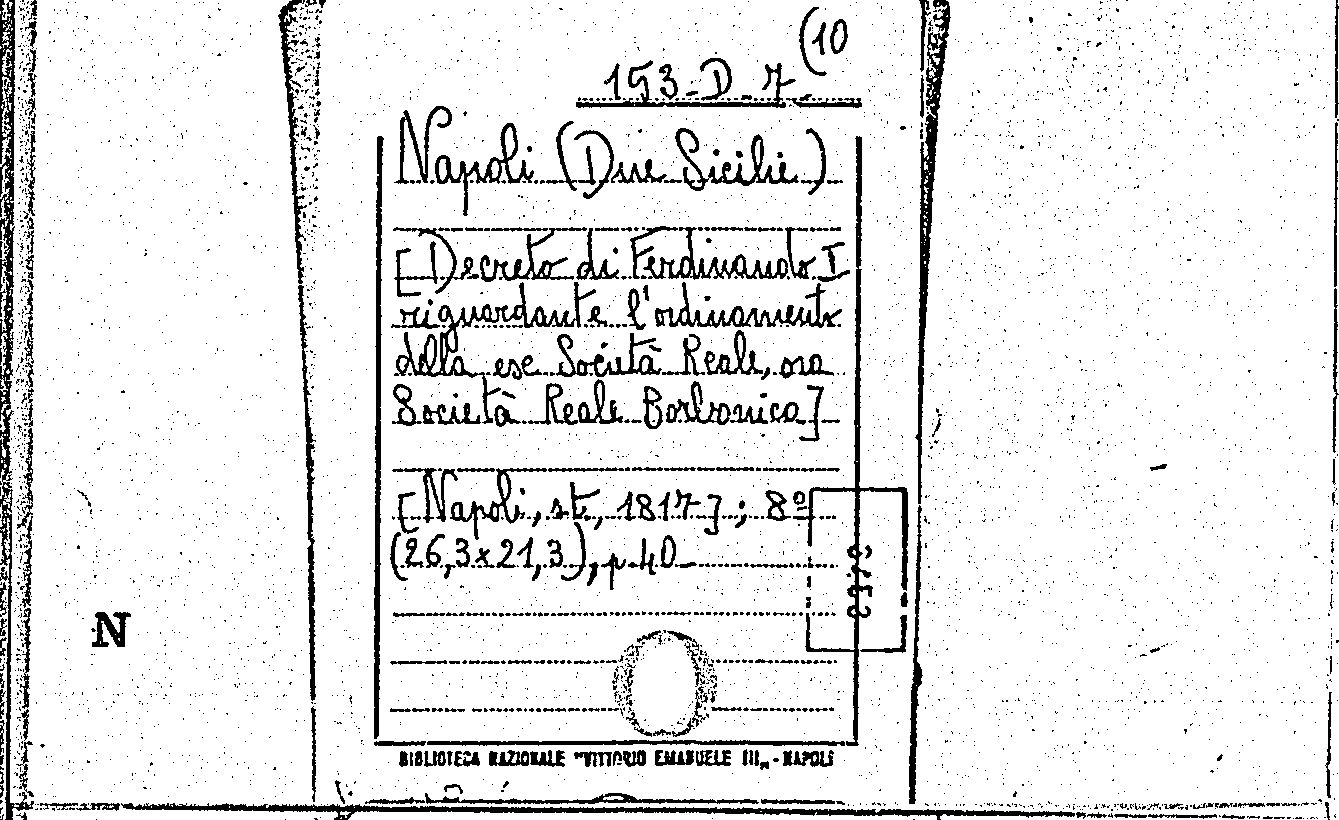 (10
153-D-7
Napoli (Due Sicilie)
[Decreto di Ferdinando I
riguardante l'ordinamento
della exe Società Reale, ora
Società Reale Borbonica]
[Napoli, st., 1817]; 8º
(26,3x21,3), p. 40
N
BIBLIOTECA NAZIONALE "VITTORIO EMANUELE III„ - NAPOLI